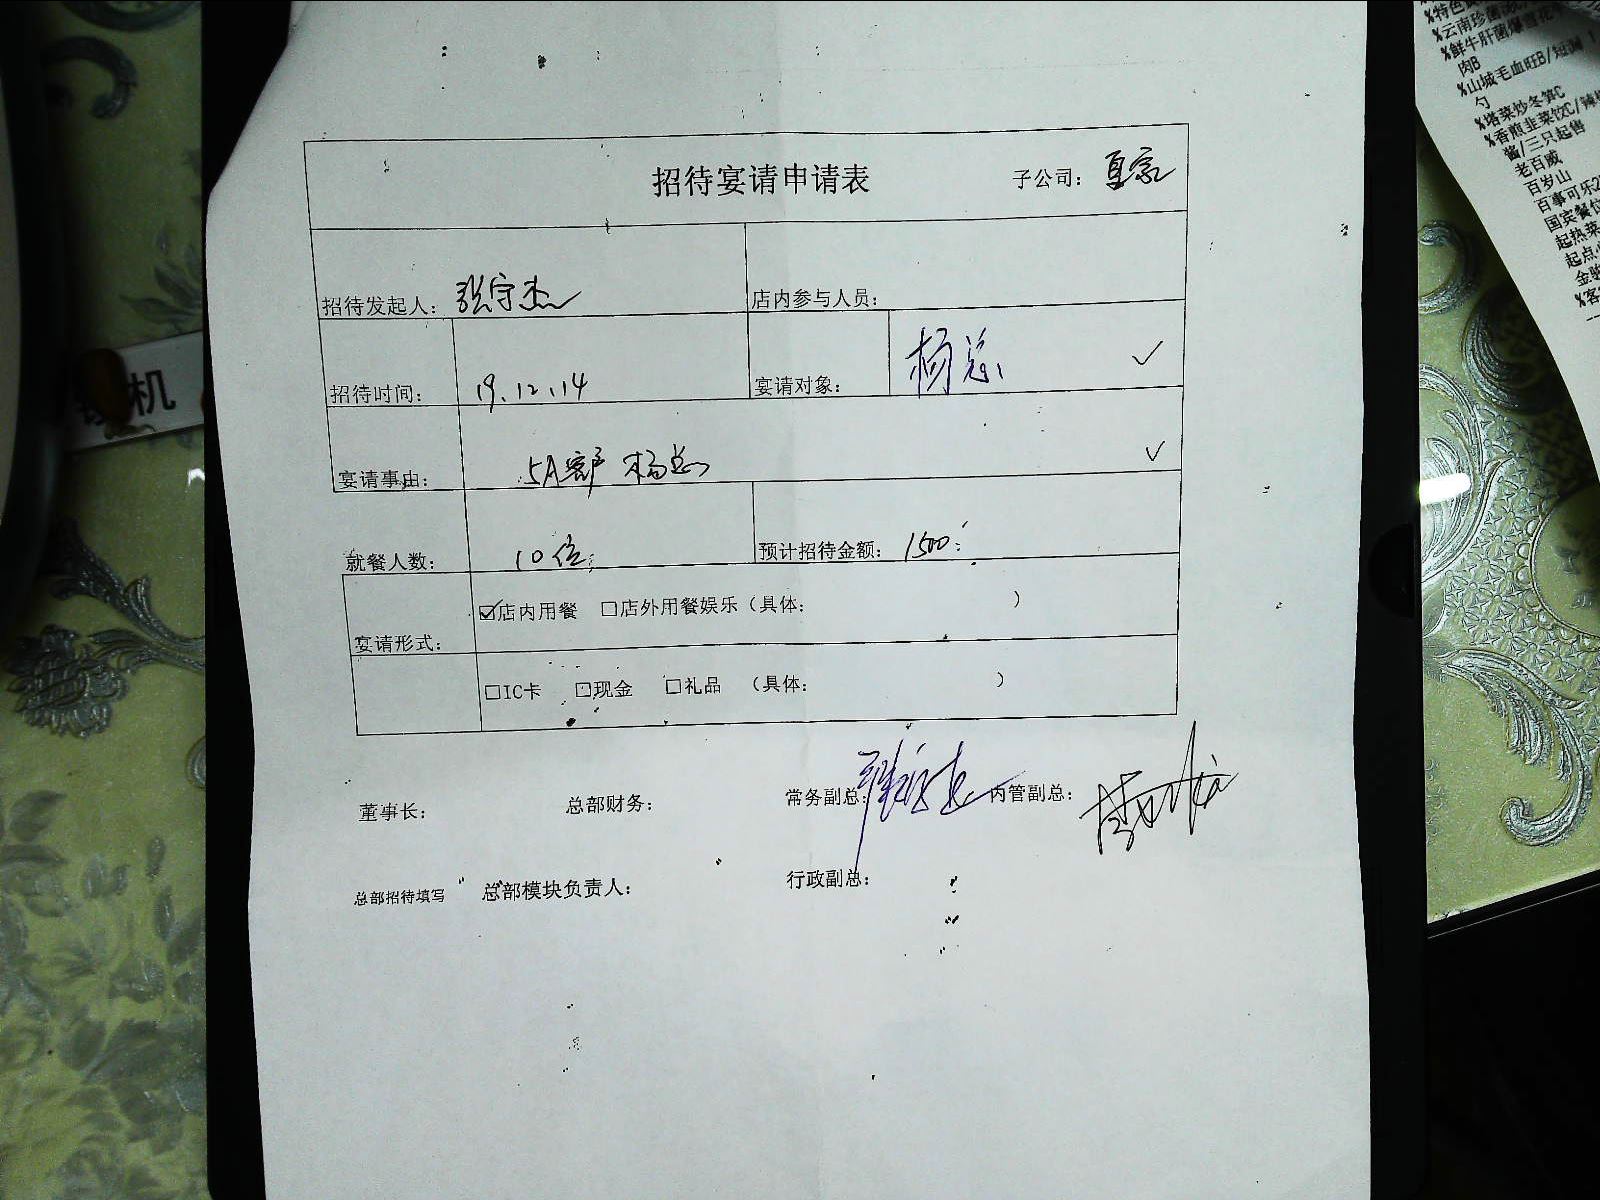 招待宴请申请表 子公司:
招待发起人: 张守杰 店内参与人员:
招待时间: 19.12.14 宴请对象: 杨总 ✓
宴请事由: 5A客户 杨总 ✓
就餐人数: 10位 预计招待金额: 1500
☑店内用餐 □店外用餐娱乐(具体: )
宴请形式:
□IC卡 □现金 □礼品 (具体: )
董事长: 总部财务: 常务副总: 内管副总:
总部招待填写 总部模块负责人: 行政副总:
机
%特色
%云南珍菌
%鲜牛肝菌爆雪花
肉B
%山城毛血旺B/
勺
%塔菜炒冬笋C
%香煎韭菜饮C/辣椒
酱/三只起售
老百威
百岁山
百事可乐2
国宾餐位
起热菜
起点
金骏
%客